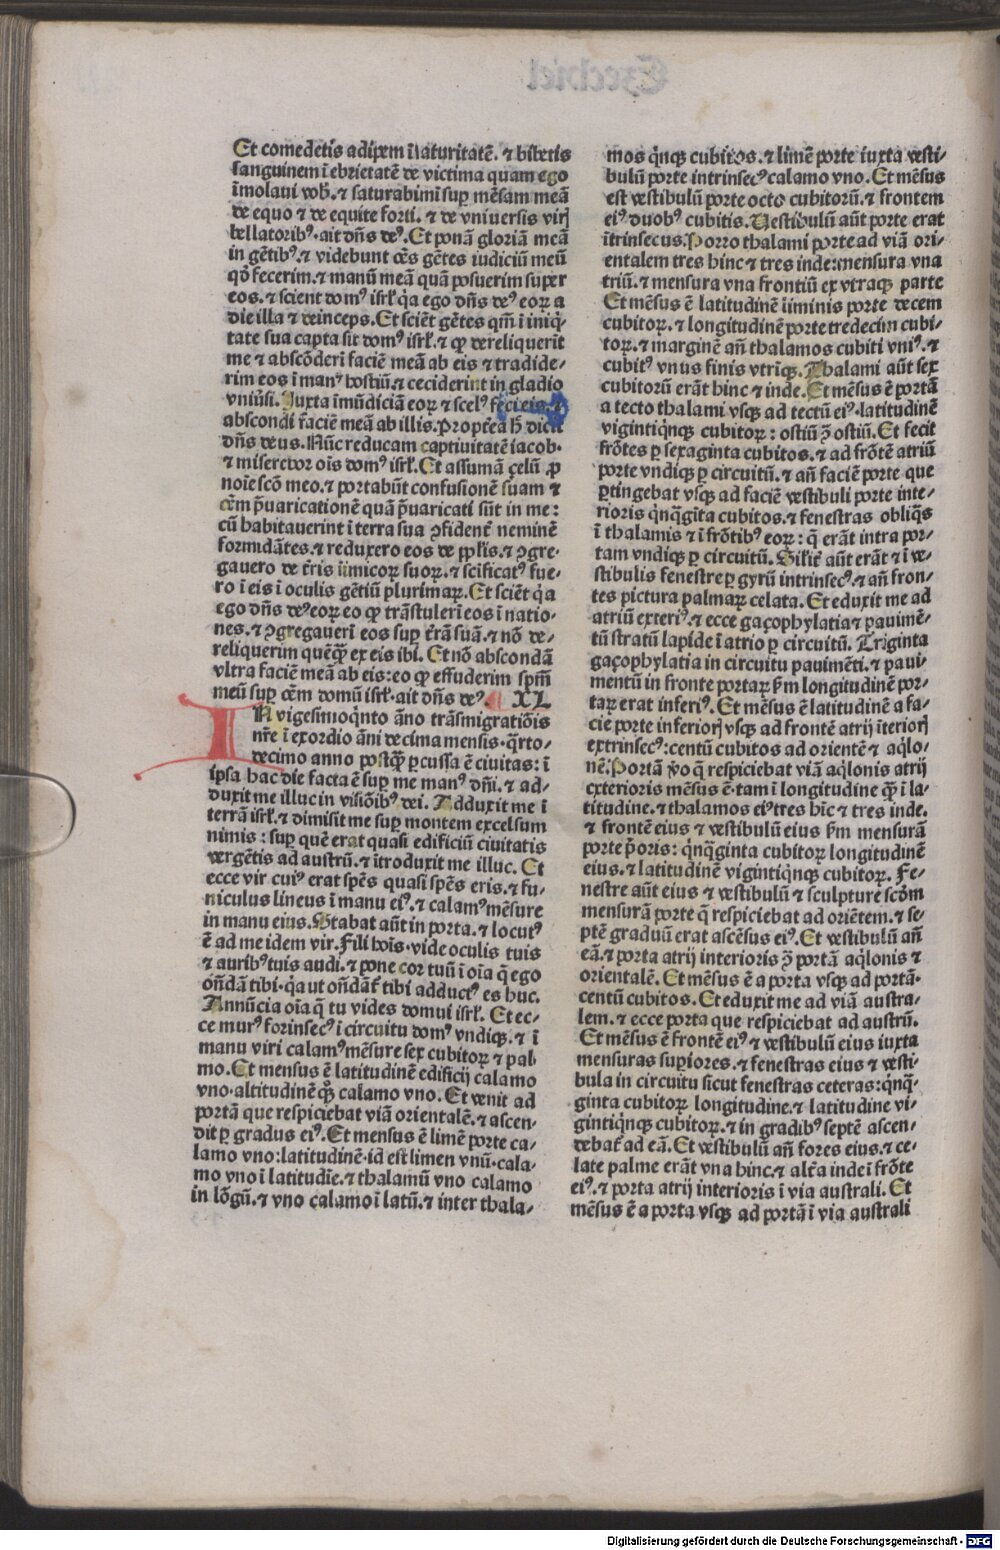 Et comedetis adipem ī saturitatē. ⁊ bibetis
sanguinem ī ebrietatē de victima quam ego
īmolaui vob̄. ⁊ saturabimī suꝑ mēsam meā
de equo ⁊ de equite forti. ⁊ de vniuersis virꝭ
bellatoribꝰ· ait dn̄s deꝰ. Et ponā gloriā meā
in gētibꝰ. ⁊ videbunt oēs gētes iudiciū meū
qd̄ fecerim. ⁊ manū meā quā posuerim super
eos. ⁊ scient domꝰ isrl̄. q̇a ego dn̄s deꝰ eoꝝ a
die illa ⁊ deinceps. Et sciēt gētes qm̄ ī iniq̇-
tate sua capta sit domꝰ isrl̄. ⁊ ꝙ dereliquerit
me ⁊ abscōderī faciē meā ab eis ⁊ tradide-
rim eos ī manꝰ hostiū. ⁊ ceciderint in gladio
vniūsi. Iuxta īmūdiciā eoꝝ ⁊ scelꝰ feci eis. ⁊
abscondi faciē meā ab illis. Propt̄ea h̄ dicit
dn̄s deus. Nūc reducam captiuitatē iacob·
⁊ miserebor oīs domꝰ isrl̄. Et assumā çelū ꝓ
noīe scō meo. ⁊ portabūt confusionē suam ⁊
oēm p̄uaricationē quā p̄uaricati sūt in me:
cū habitauerint ī terra sua ꝯfident̄ neminē
formidātes. ⁊ reduxero eos de ppl̄is. ⁊ ꝯgre-
gauero de t̄ris inimicoꝝ suoꝝ. ⁊ sc̄ificatꝰ fue-
ro ī eis ī oculis gētiū plurimaꝝ. Et sciēt q̇a
ego dn̄s deꝰ eoꝝ eo ꝙ trāstulerī eos ī natio-
nes. ⁊ ꝯgregauerī eos suꝑ t̄rā suā. ⁊ nō de-
reliquerim quēq̄ꝫ ex eis ibi. Et nō abscondā
vltra faciē meā ab eis: eo ꝙ effuderim spm̄
meū suꝑ oēm domū isrl̄. ait dn̄s deꝰ. XL
IN vigesimoq̇nto āno trāsmigratiōis
nr̄e ī exordio āni decima mensis. q̄rto-
decimo anno postq̄ꝫ ꝑcussa ē ciuitas: ī
ipsa hac die facta ē suꝑ me manꝰ dn̄i. ⁊ ad-
duxit me illuc in visiōibꝰ dei. Adduxit me ī
terrā isrl̄. ⁊ dimisit me suꝑ montem excelsum
nimis: suꝑ quē erat quasi edificiū ciuitatis
vergētis ad austrū. ⁊ ītroduxit me illuc. Et
ecce vir cuiꝰ erat spēs quasi spēs eris. ⁊ fu-
niculus lineus ī manu eiꝰ. ⁊ calamꝰ mēsure
in manu eius. Stabat aūt in porta. ⁊ locutꝰ
ē ad me idem vir. Fili hoīs. vide oculis tuis
⁊ auribꝰ tuis audi. ⁊ pone cor tuū ī oīa q̄ ego
on̄dā tibi. q̇a ut on̄dāt̄ tibi adductꝰ es huc.
Annūcia oīa q̄ tu vides domui isrl̄. Et ec-
ce murꝰ forinsecꝰ ī circuitu domꝰ vndiqꝫ. ⁊ ī
manu viri calamꝰ mēsure sex cubitoꝝ ⁊ pal
mo. Et mensus ē latitudinē edificij calamo
vno. altitudinē qꝫ calamo vno. Et venit ad
portā que respiciebat viā orientalē. ⁊ ascen-
dit ꝑ gradus eiꝰ. Et mensus ē limē porte ca-
lamo vno: latitudinē. id est limen vnū. cala-
mo vno ī latitudīe. ⁊ thalamū vno calamo
in lōgū. ⁊ vno calamo ī latū. ⁊ inter thala-
mos q̇nqꝫ cubitos. ⁊ limē porte iuxta vesti-
bulū porte intrinsecꝰ calamo vno. Et mēsus
est vestibulū porte octo cubitorū. ⁊ frontem
eiꝰ duobꝰ cubitis. Vestibulū aūt porte erat
ītrinsecus. Porro thalami porte ad viā ori-
entalem tres hinc ⁊ tres inde: mensura vna
triū. ⁊ mensura vna frontiū ex vtraqꝫ parte
Et mēsus ē latitudinē liminis porte decem
cubitoꝝ. ⁊ longitudinē porte tredecim cubi-
toꝝ. ⁊ marginē an̄ thalamos cubiti vniꝰ. ⁊
cubitꝰ vnus finis vtrīqꝫ. Thalami aūt sex
cubitorū erāt hinc ⁊ inde. Et mēsus ē portā
a tecto thalami vsqꝫ ad tectū eiꝰ. latitudinē
vigintiq̇nqꝫ cubitoꝝ: ostiū ꝯ̄ ostiū. Et fecit
frōtes ꝑ sexaginta cubitos. ⁊ ad frōtē atriū
porte vndiqꝫ ꝑ circuitū. ⁊ an̄ faciē porte que
ꝑtingebat vsqꝫ ad faciē vestibuli porte inte-
rioris q̇nq̄gīta cubitos. ⁊ fenestras obliq̄s
ī thalamis ⁊ ī frōtibꝰ eoꝝ: q̄ erāt intra por-
tam vndiqꝫ ꝑ circuitū. Silit̄ aūt erāt ⁊ ī ve-
stibulis fenestre ꝑ gyrū intrinsecꝰ. ⁊ an̄ fron-
tes pictura palmaꝝ celata. Et eduxit me ad
atriū exteriꝰ. ⁊ ecce gaçophylatia ⁊ pauimē-
tū stratū lapide ī atrio ꝑ circuitū. Triginta
gaçophylatia in circuitu pauimēti. ⁊ paui-
mentū in fronte portaꝝ ẜm longitudinē por-
taꝝ erat inferiꝰ. Et mēsus ē latitudinē a fa-
cie porte inferiorꝭ vsqꝫ ad frontē atrij īteriorꝭ
extrinsecꝰ: centū cubitos ad orientē ⁊ aq̇lo-
nē. Portā v̄o q̄ respiciebat viā aq̇lonis atrij
exterioris mēsus ē. tam ī longitudine q̄ꝫ ī la-
titudine. ⁊ thalamos eiꝰ tres hīc ⁊ tres inde.
⁊ frontē eius ⁊ vestibulū eius ẜm mensurā
porte p̄oris: q̇nq̄ginta cubitoꝝ longitudinē
eius. ⁊ latitudinē vigintiq̇nqꝫ cubitoꝝ. Fe-
nestre aūt eius ⁊ vestibulū ⁊ sculpture scd̄m
mensurā porte q̄ respiciebat ad oriētem. ⁊ se-
ptē graduū erat ascēsus eiꝰ. Et vestibulū an̄
eā. ⁊ porta atrij interioris ꝯ̄ portā aq̇lonis ⁊
orientalē. Et mēsus ē a porta vsqꝫ ad portā.
centū cubitos. Et eduxit me ad viā austra-
lem. ⁊ ecce porta que respiciebat ad austrū.
Et mēsus ē frontē eiꝰ ⁊ vestibulū eius iuxta
mensuras suꝑiores. ⁊ fenestras eius ⁊ vesti-
bula in circuitu sicut fenestras ceteras: q̇nq̄-
ginta cubitoꝝ longitudine. ⁊ latitudine vi-
gintiq̇nqꝫ cubitoꝝ. ⁊ in gradibꝰ septē ascen-
debat̄ ad eā. Et vestibulū an̄ fores eius. ⁊ ce-
late palme erāt vna hinc. ⁊ alt̄a inde ī frōte
eiꝰ. ⁊ porta atrij interioris ī via australi. Et
mēsus ē a porta vsqꝫ ad portā ī via australi
Digitalisierung gefördert durch die Deutsche Forschungsgemeinschaft - DFG